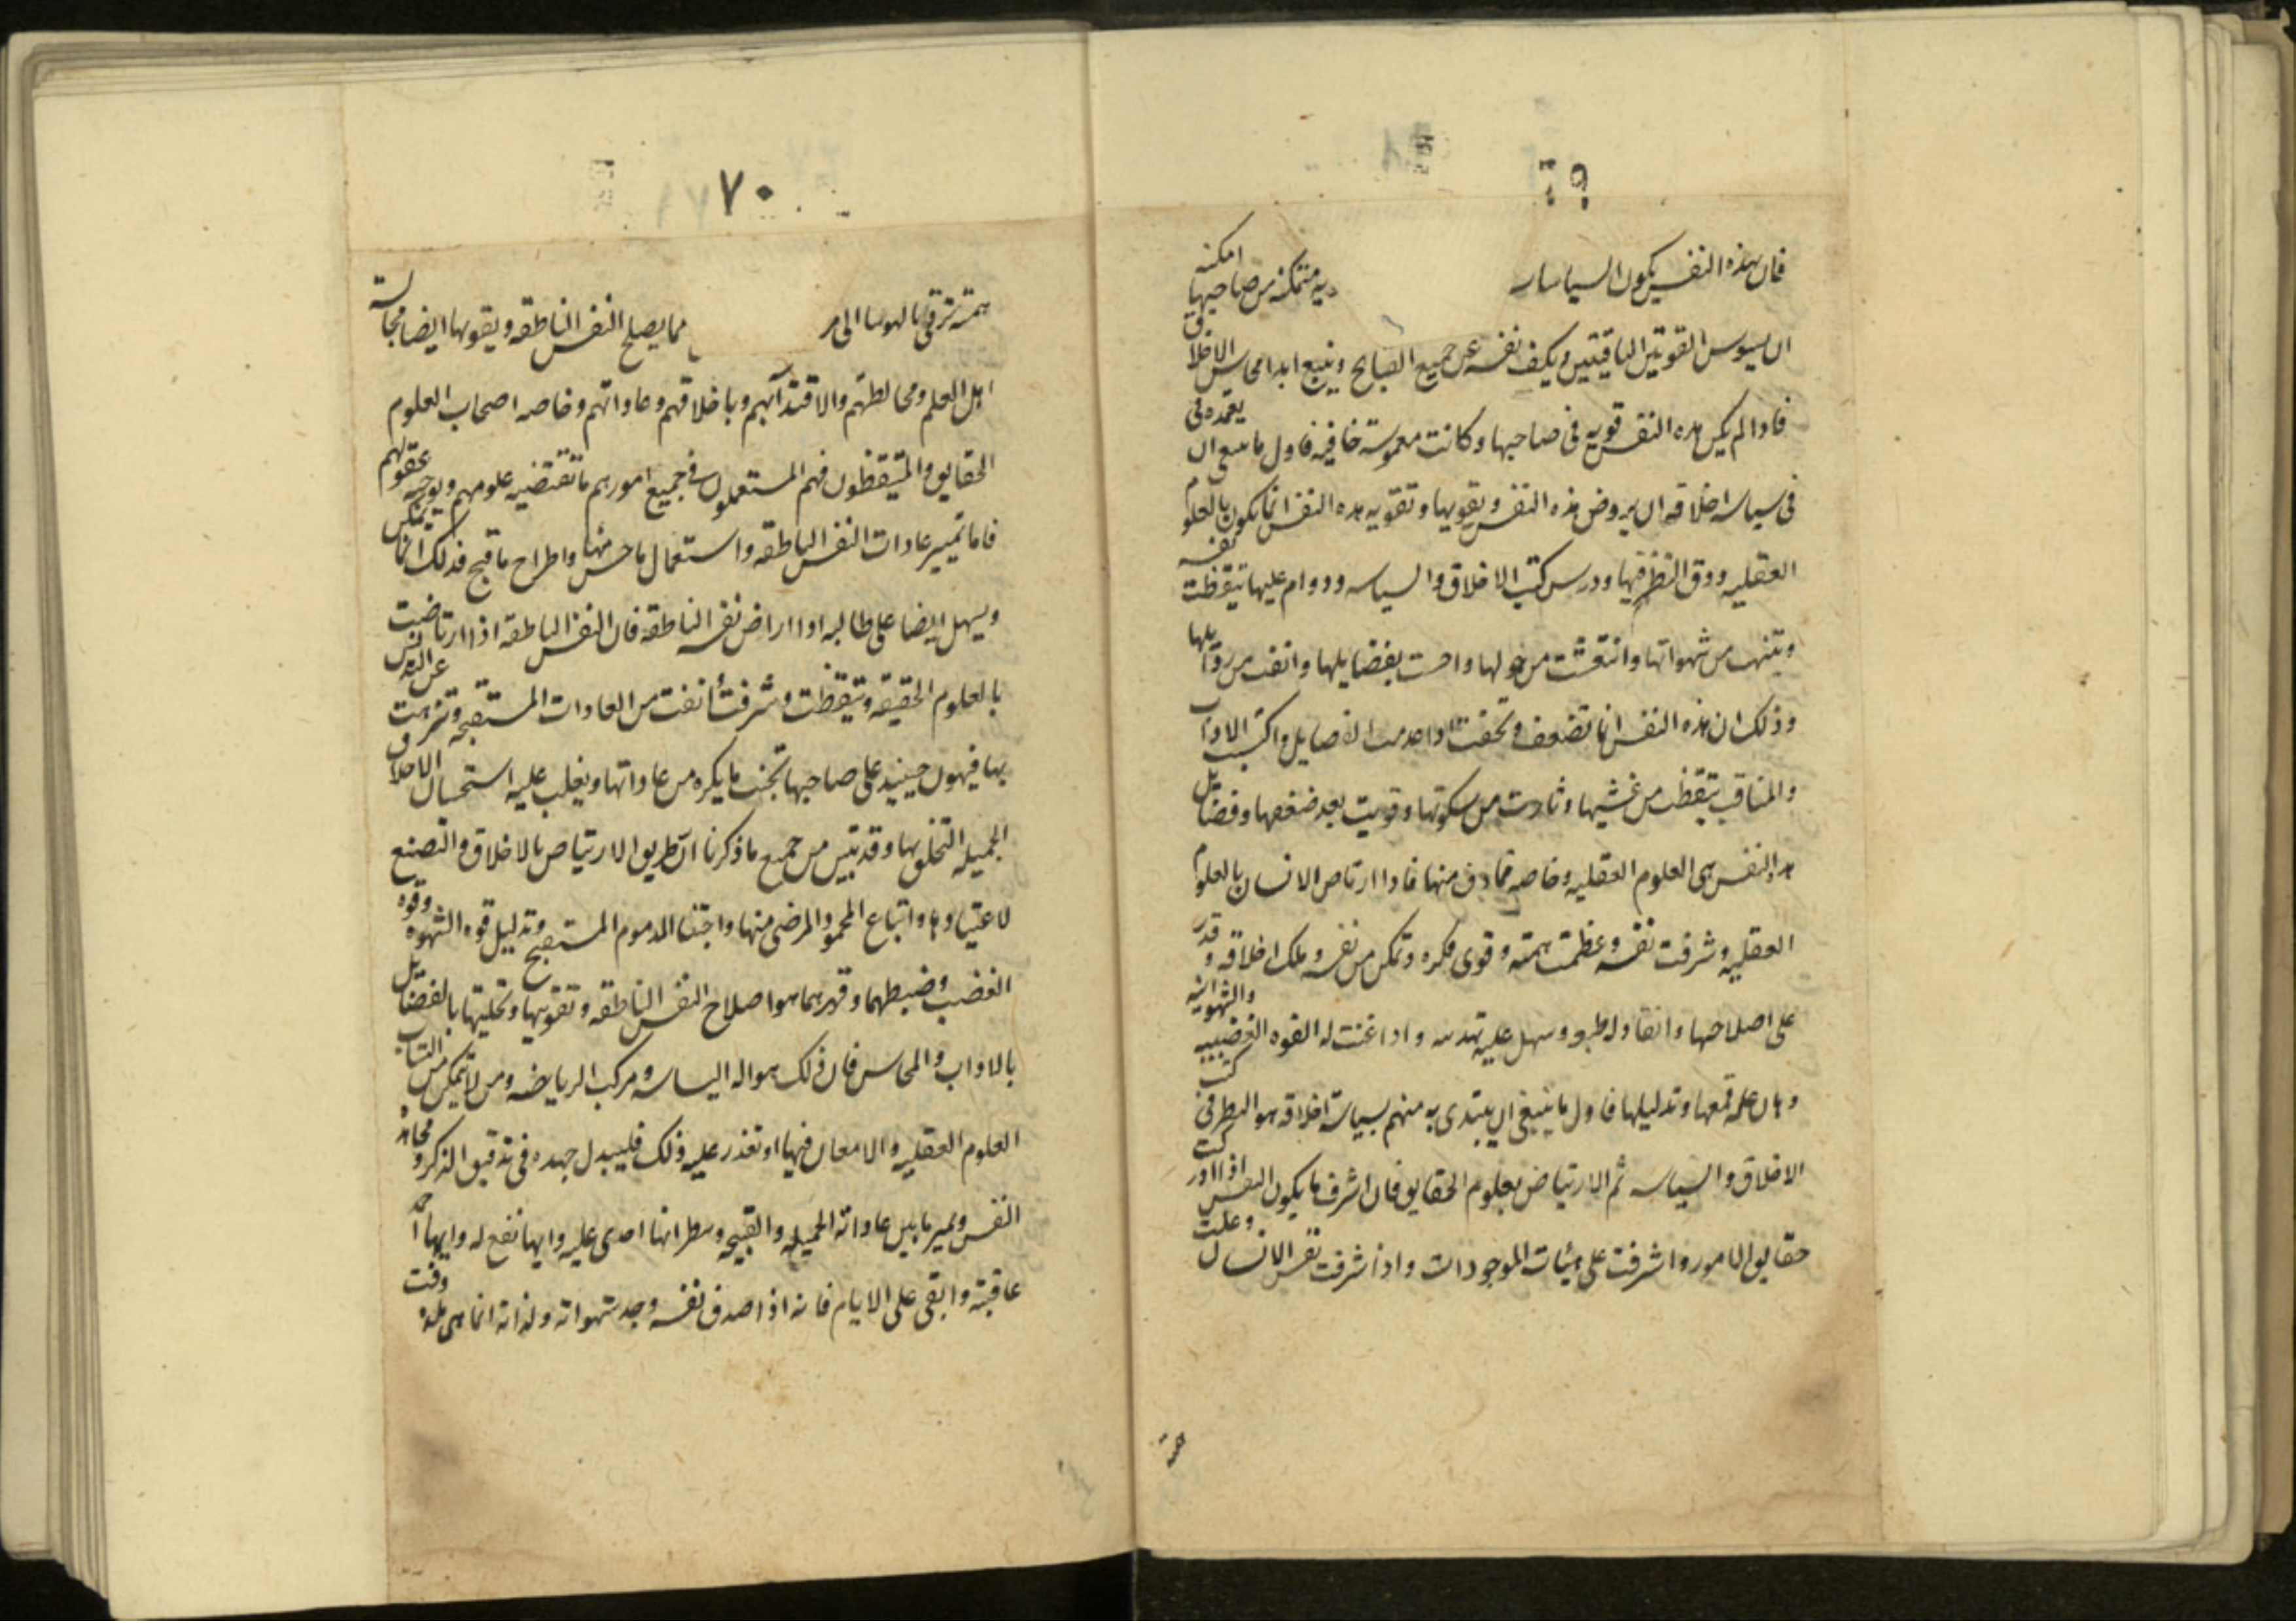 فان هذه النفس يكون السياسا متمكنة من صاحبها امكنه
ان يسوس القوتين الباقيتين ويكف نفسه عن جميع القبايح ويتبع ابدا محاسن الاخلاق
فاذا لم يكن هذه النفس قويه فى صاحبها وكانت مغموسة خافيه فاول ما ينبغى ان يعتمده فى
فى سياسة اخلاقه ان يروض هذه النفس ويقويها وتقويه هذه النفس انما يكون بالعلوم
العقليه ودق النظر فيها ودرس كتب الاخلاق والسياسه ودوام عليها تيقظت نفسه
وتنبهت من شهواتها وانتعشت من خمولها واحست بفضايلها وانفت من رذايلها
وذلك ان هذه النفس انما تضعف وتخفت اذا عدمت الفضايل واكتسب الاداب
والمناقب تيقظت من غشيها وثارت من سكونها وقويت بعد ضعفها وفضايل
هذه النفس هى العلوم العقليه وخاصه ما دق منها فاذا ارتاض الانسان بالعلوم
العقليه شرفت نفسه وعظمت همته وقوى فكره وتمكن من نفسه وملك اخلاقه وقدر
على اصلاحها وانقاد له طبعه وسهل عليه تهذيبه واذاعنت له القوه الغضبيه والشهوانيه
وهان عليه قمعها وتذليلها فاول ما ينبغى ان يبتدى به منهم بسياسة اخلاقه هو النظر فى كتب
الاخلاق والسياسه ثم الارتياض بعلوم الحقايق فان اشرف ما يكون النفس اذا ادركت
حقايق الامور واشرفت على هيئات الموجودات واذا شرفت نفس الانسان وعلت
همته
٧٠
همته ترقى مما يصلح النفس الناطقه ويقويها ايضا مجالسة
اهل العلم ومخالطتهم والاقتدآء بهم وباخلاقهم وعاداتهم وخاصه اصحاب العلوم
الحقايق والمتيقظون فهم المستعملون فى جميع امورهم ما تقتضيه علومهم ويوجبه عقولهم
فاما تمييز عادات النفس الناطقه واستعمال ما حسن منها واطراح ما قبح فذلك انما يمكن
ويسهل ايضا على طالبه اذا اراض نفسه الناطقه فان النفس الناطقة اذا ارتاضت
بالعلوم الحقيقه وتيقظت وشرفت أنفت من العادات المستقبحه وتنزهت عن التدنس
بها فيهون حينيذ على صاحبها تجنب ما يكره من عاداتها ويغلب عليه استحسان الاخلاق
الجميله التخلق بها وقد تبين من جميع ما ذكرنا ان طريق الارتياض بالاخلاق والتصنع
لاعتيادها واتباع المحمود المرضى منها واجتناب المذموم المستقبح وتذليل قوه الشهوه وقوه
الغضب وضبطهما وقهرهما هو اصلاح النفس الناطقه وتقويتها وتحليتها بالفضايل
بالاداب والمحاسن فان ذلك هو اله السياسه ومركب الرياضه ومن لا يتمكن من اكتساب
العلوم العقليه والامعان فيها او تعذر عليه ذلك فليبذل جهده فى تدقيق الفكر ومجاهدة
النفس ويميز ما بين عاداته الجميله والقبيحه وينظر ايها اجدى عليه وايها نفع له وايها احمد
عاقبة وابقى على الايام فانه اذا صدف نفسه وجد شهواته ولذاته انما هى ملذه وقت